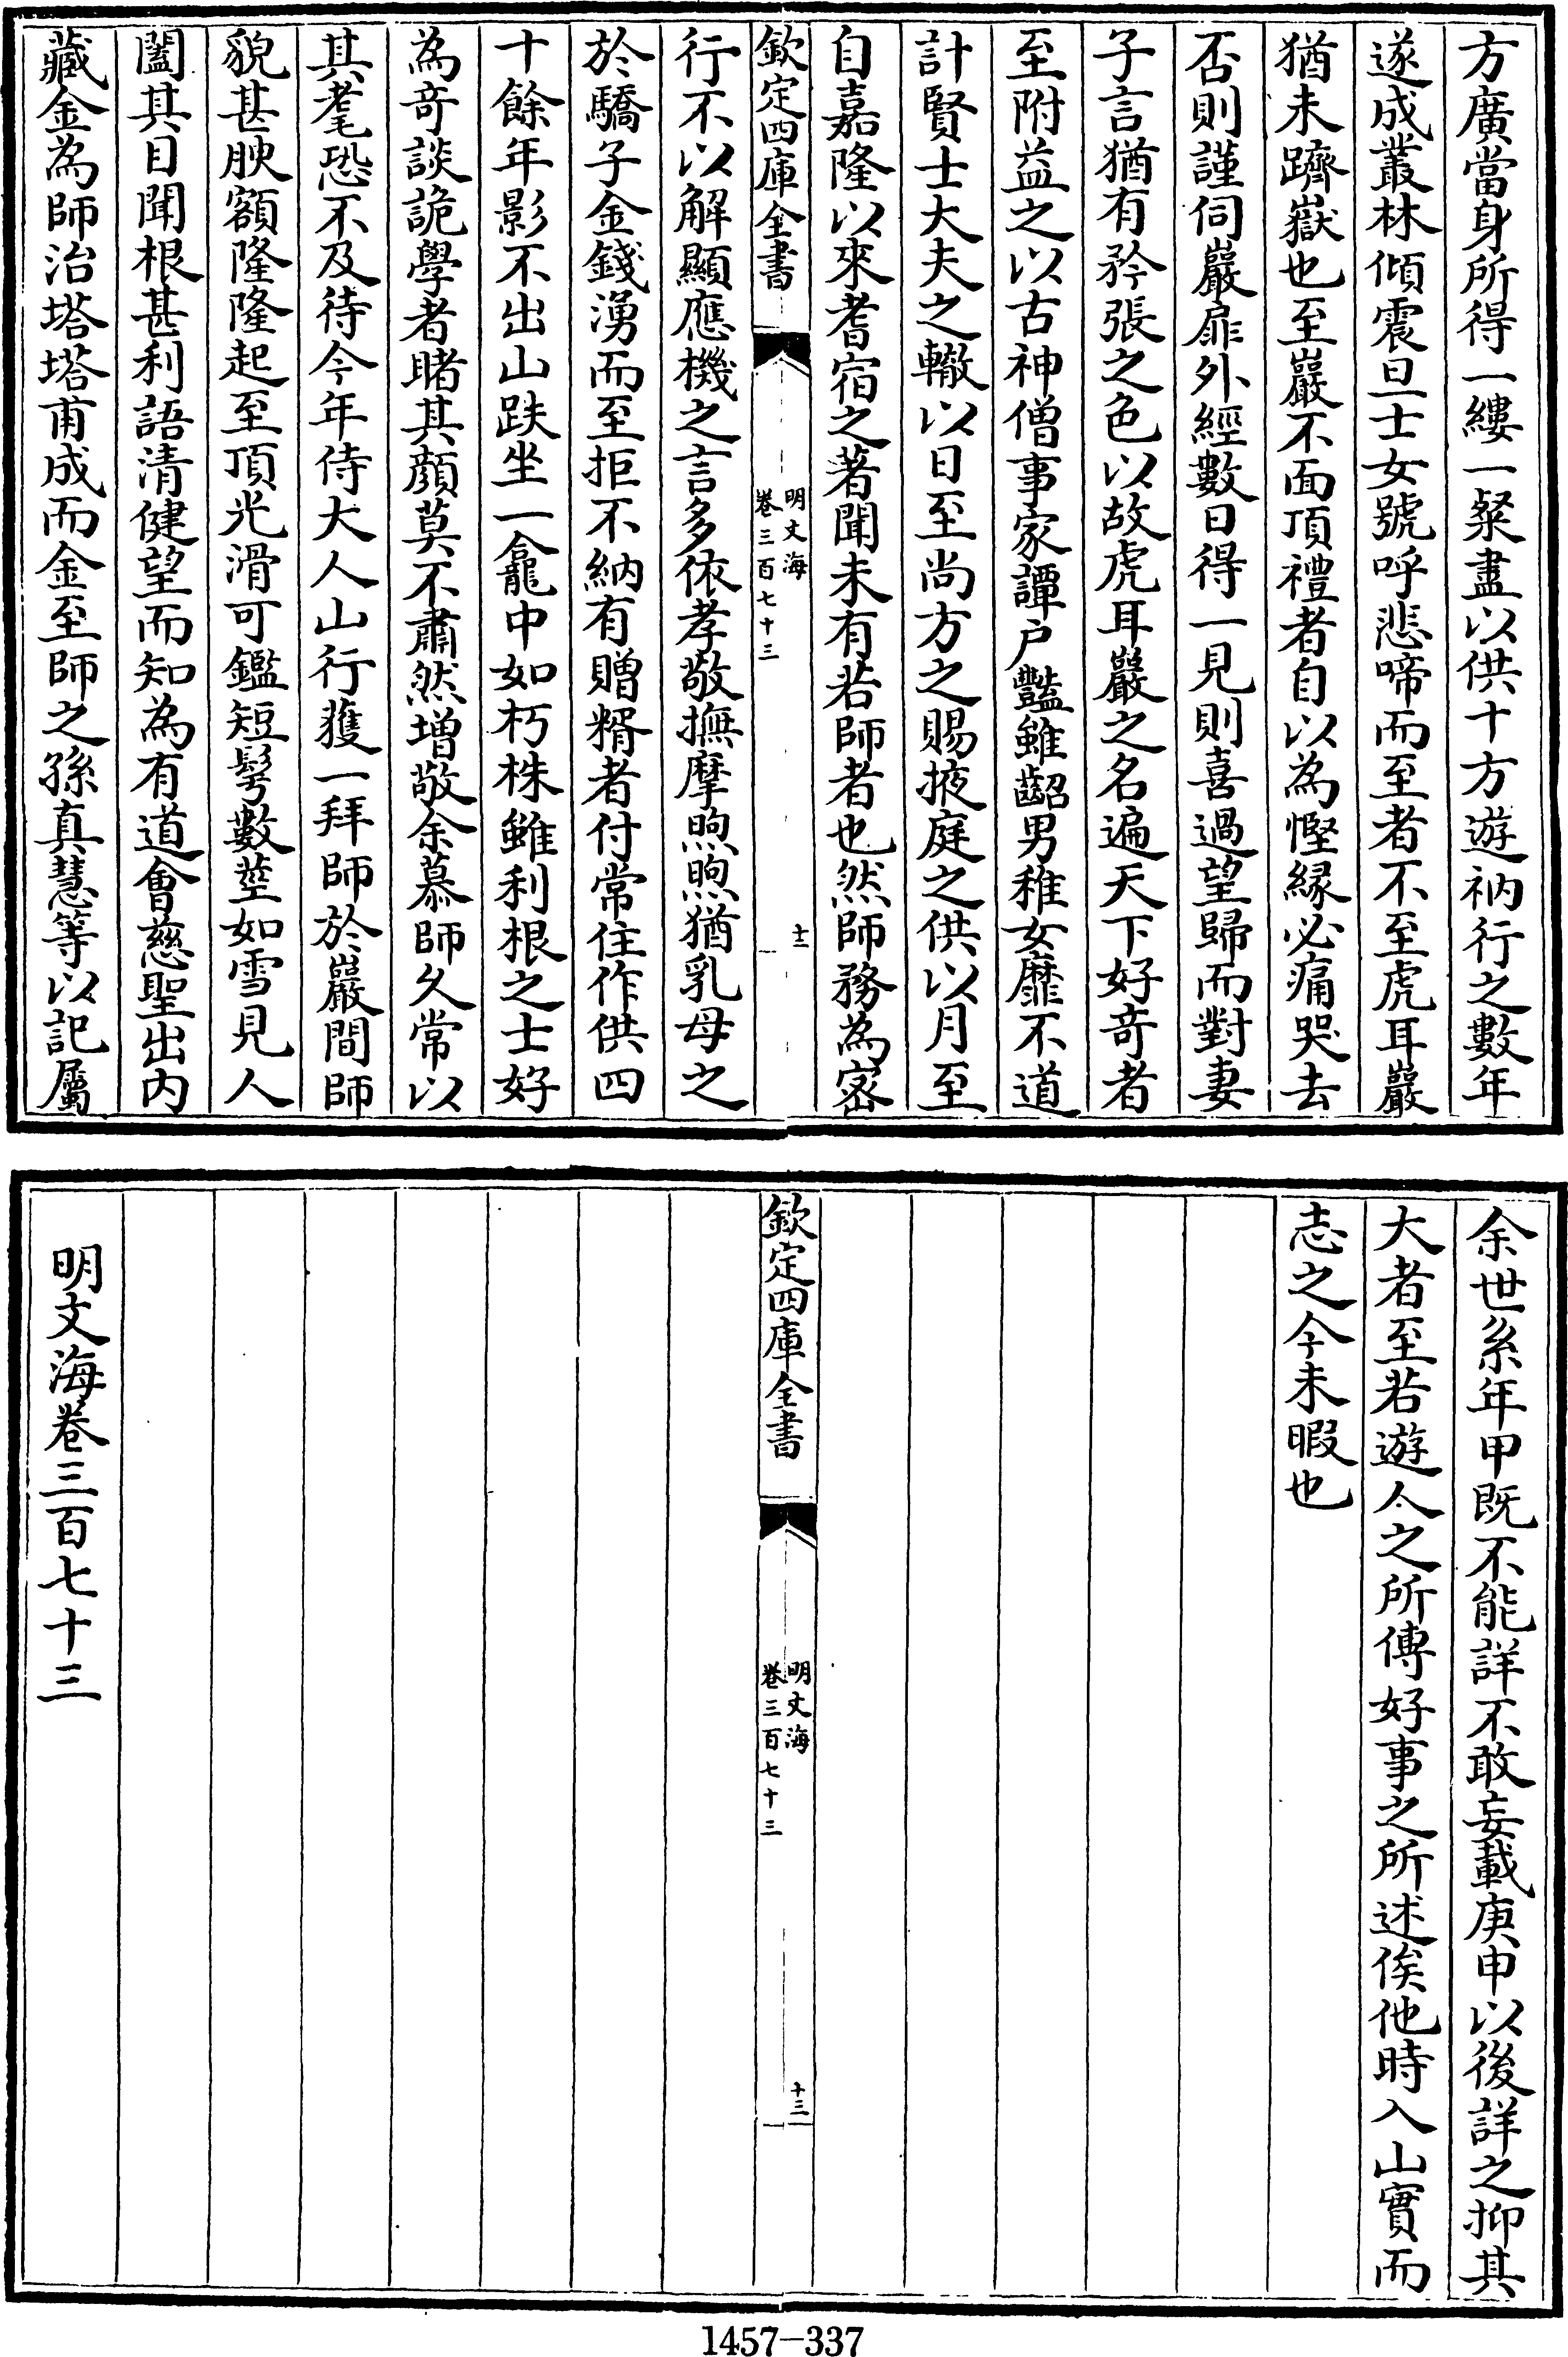 方廣當身所得一縷一粲盡以供十方遊衲行之數年
遂成叢林傾震旦士女號呼悲啼而至者不至虎耳巖
猶未躋嶽也至巖不面頂禮者自以為慳緣必痛哭去
否則謹伺巖扉外經數日得一見則喜過望歸而對妻
子言猶有矜張之色以故虎耳巖之名遍天下好奇者
至附益之以古神僧事家譚户豔雖齠男稚女靡不道
計賢士大夫之轍以日至尚方之賜掖庭之供以月至
自嘉隆以來耆宿之著聞未有若師者也然師務為密
欽定四庫全書
明文海
卷三百七十三
十二
行不以解顯應機之言多依孝敬撫摩煦煦猶乳母之
於驕子金錢湧而至拒不納有贈糈者付常住作供四
十餘年影不出山趺坐一龕中如朽株雖利根之士好
為奇談詭學者睹其顏莫不肅然增敬余慕師久常以
其耄恐不及待今年侍大人山行獲一拜師於巖間師
貌甚腴額隆隆起至頂光滑可鑑短髩數莖如雪見人
闔其目聞根甚利語清健望而知為有道會慈聖出内
藏金為師治塔塔甫成而金至師之孫真慧等以記屬
余世系年甲既不能詳不敢妄載庚申以後詳之抑其
大者至若遊人之所傳好事之所述俟他時入山實而
志之今未暇也
欽定四庫全書
明文海
卷三百七十三
十三
明文海卷三百七十三
1457-337